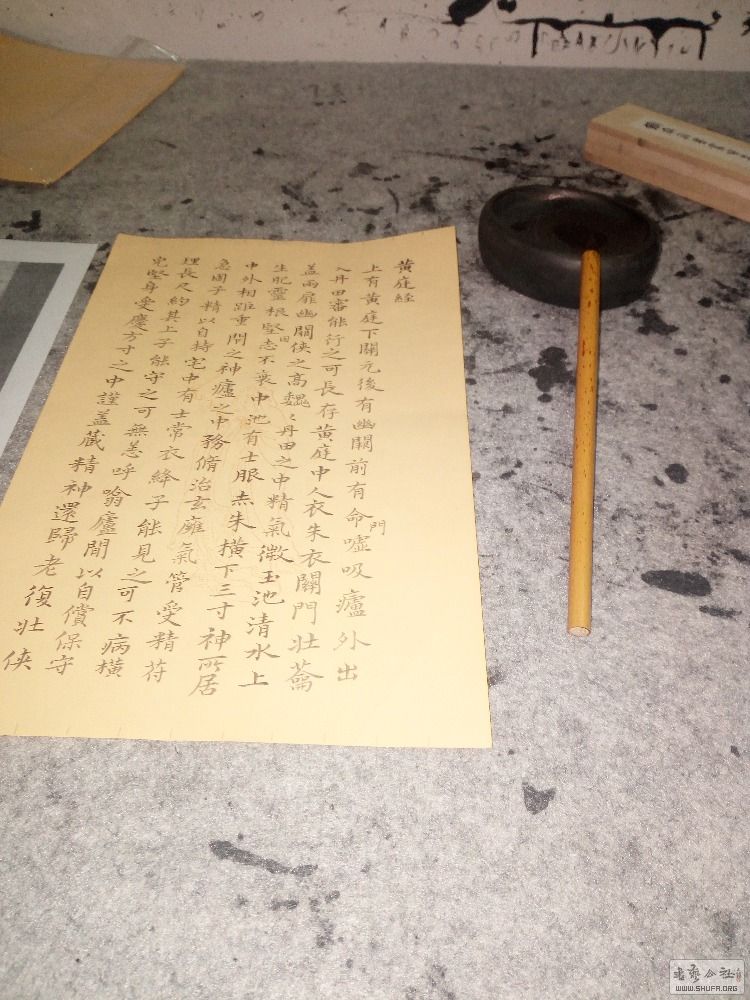 黃庭經
上有黃庭下關元後有幽闕前有命門噓吸廬外出
入丹田審能行之可長存黃庭中人衣朱衣關門壯蘥
蓋兩扉幽闕俠之高巍〻丹田之中精氣微玉池清水上
生肥靈根堅志不衰中池有士服赤朱橫下三寸神所居
中外相距重閇之神廬之中務脩治玄廱氣管受精苻
急固子精以自持宅中有士常衣絳子能見之可不病橫
理長尺約其上子能守之可無恙呼噏廬間以自償保守
完堅身受慶方寸之中謹蓋藏精神還歸老復壯俠
WWW.SHUFA.ORG